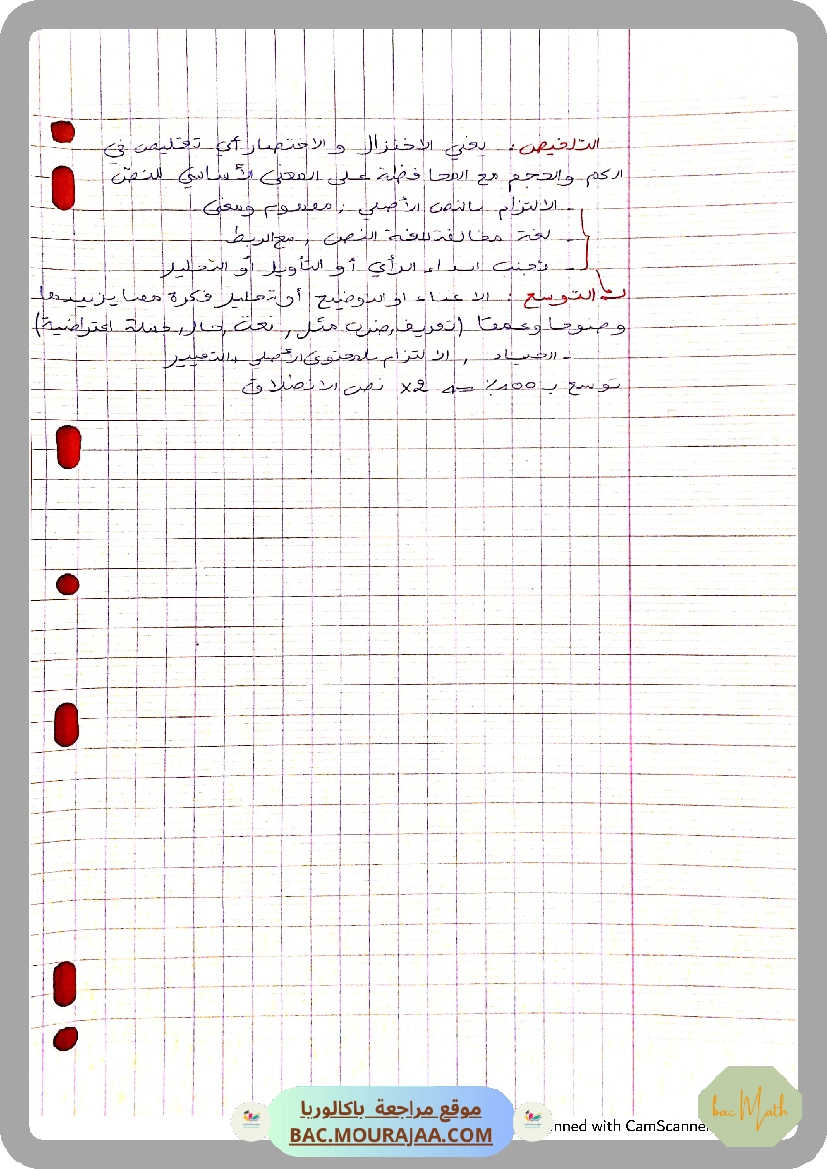 التلخيص: يعني الاختزال و الاختصار أي تقليص في
الكم والحجم مع المحافظة على المعنى الأساسي للنص
- الالتزام بالنص الأصلي , مفهوم ومعنى
- لغة مخالفة للغة النص , مع الربط
- تجنب ابداء الرأي أو التأويل أو التحليل
التوسع: الاغناء او التوضيح أو تحليل فكرة مما يزيدها
وضوحا وعمقا (تعريف, ضرب مثل, نعت, حال, جملة اعتراضية)
- الحياد , الالتزام بالمحتوى الأصلي , التغيير
توسع ب 100% => x2 نص الانطلاق
موقع مراجعة باكالوريا
BAC.MOURAJAA.COM
nned with CamScanner
bac Math